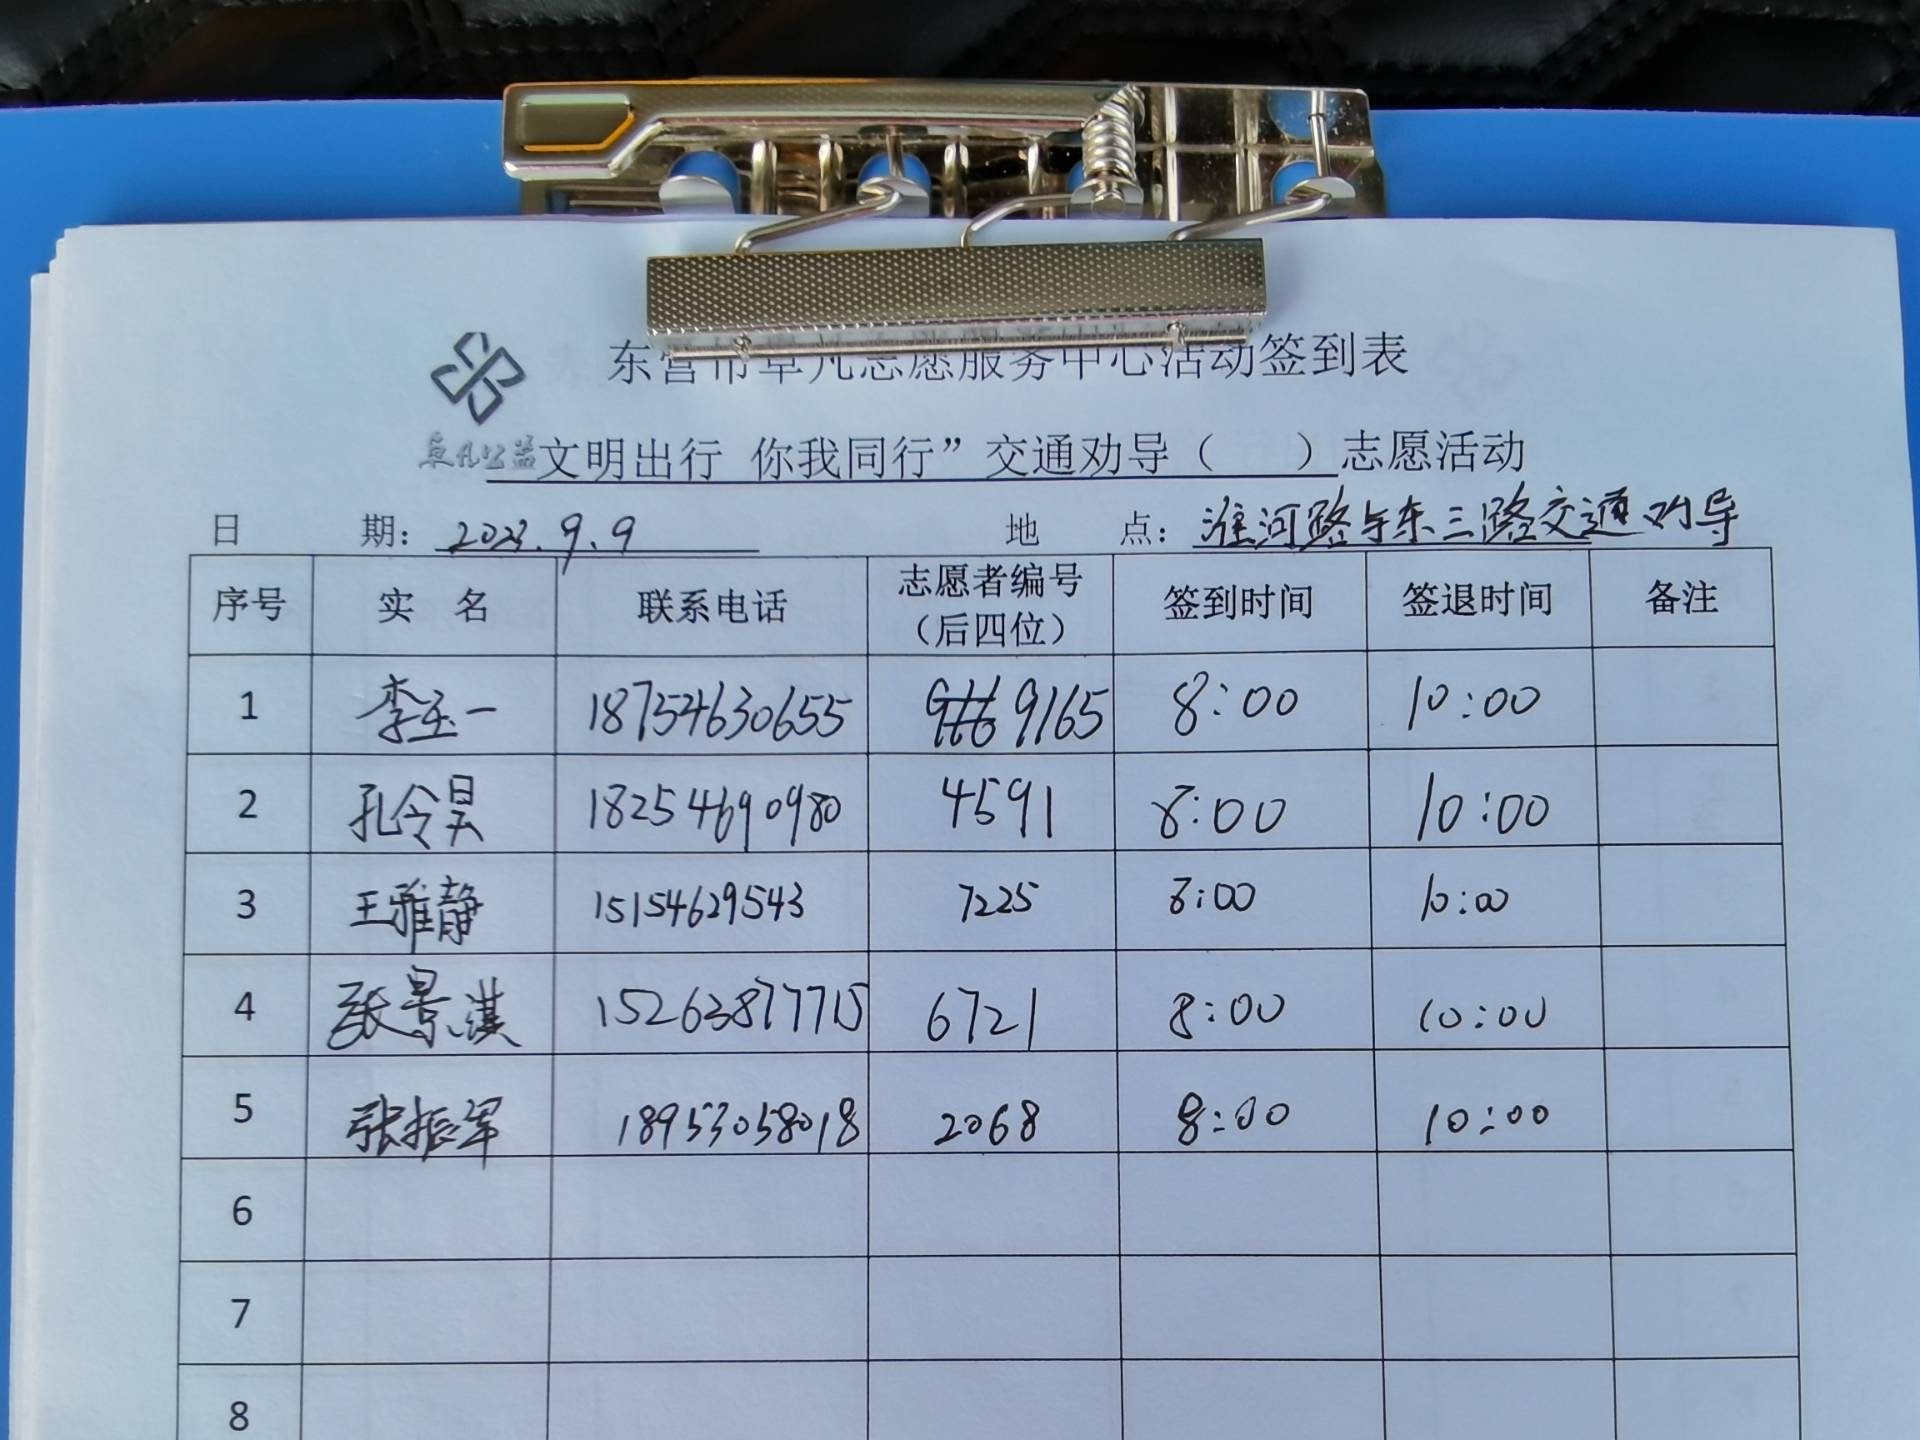 东营市卓凡志愿服务中心活动签到表
卓凡公益 文明出行 你我同行”交通劝导（ ）志愿活动
日 期： 2023.9.9 地 点： 淮河路与东三路交通劝导
序号 实 名 联系电话 志愿者编号（后四位） 签到时间 签退时间 备注
1 李玉一 18754630655 9165 8:00 10:00
2 孔令昊 18254690980 4591 8:00 10:00
3 王雅静 15154629543 7225 8:00 10:00
4 张景淇 15263877715 6721 8:00 10:00
5 张振军 18953058018 2068 8:00 10:00
6
7
8